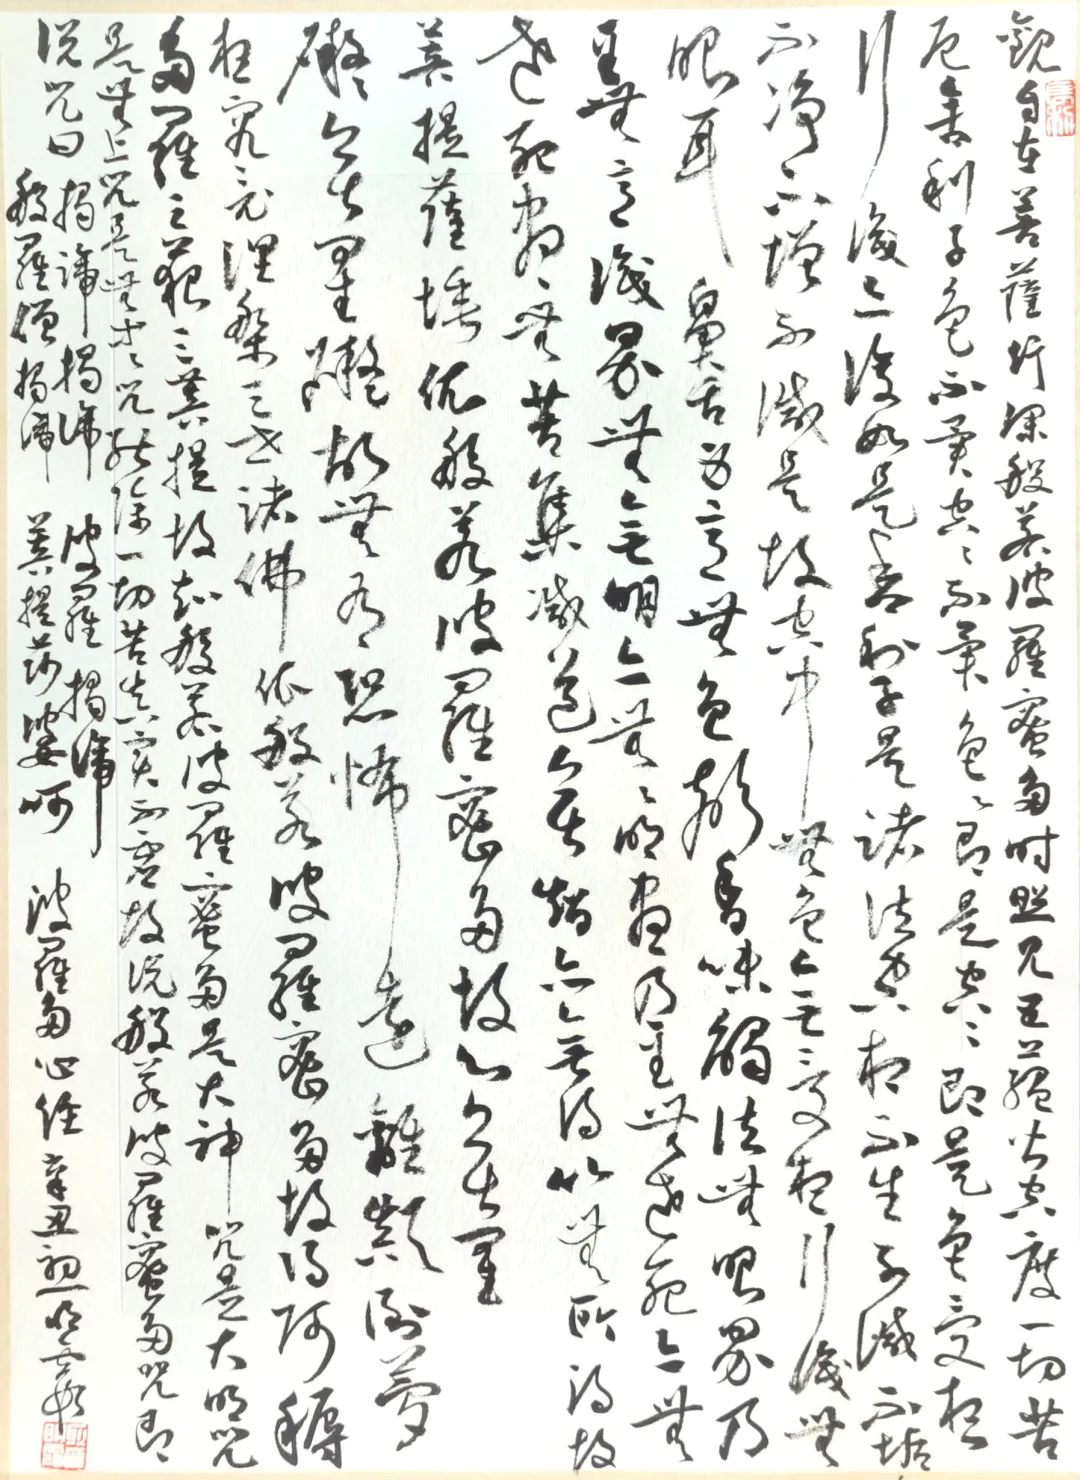 觀自在菩薩行深般若波羅蜜多時照見五蘊皆空度一切苦
厄舍利子色不異空々不異色々即是空々即是色受想
行識亦復如是舍利子是諸法空相不生不滅不垢
不淨不增不減是故空中無色無受想行識無
眼耳鼻舌身意無色聲香味觸法無眼界乃
至無意識界無無明亦無々明盡乃至無老死亦無
老死盡無苦集滅道無智亦無得以無所得故
菩提薩埵依般若波羅蜜多故心無罣
礙無罣礙故無有恐怖遠離顛倒夢
想究竟涅槃三世諸佛依般若波羅蜜多故得阿耨
多羅三藐三菩提故知般若波羅蜜多是大神咒是大明咒
是無上咒是無等々咒能除一切苦真實不虛故說般若波羅蜜多咒即
說咒曰 揭諦揭諦 波羅揭諦
般羅僧揭諦 菩提莎婆呵 波羅多心經 辛丑